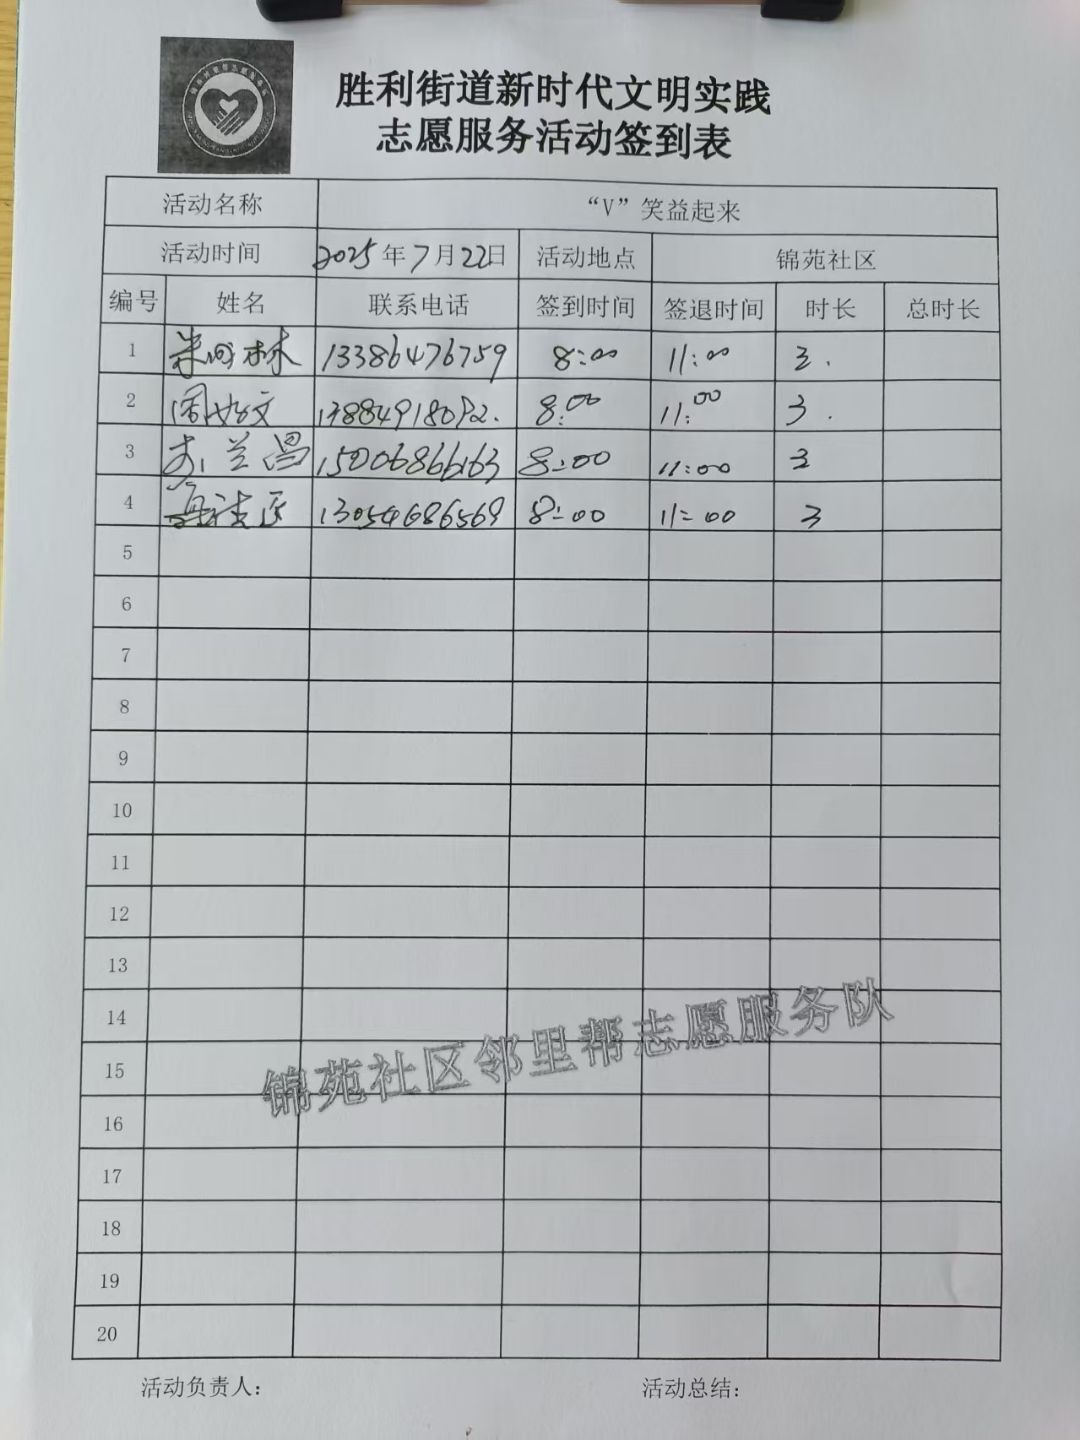 胜利街道新时代文明实践
志愿服务活动签到表
活动名称 “V”笑益起来
活动时间 2025年7月22日 活动地点 锦苑社区
编号 姓名 联系电话 签到时间 签退时间 时长 总时长
1 林 13386476759 8:00 11:00 3.
2 文 13884918092. 8:00 11:00 3.
3 李兰昌 15006866163 8:00 11:00 3
4 13054686569 8:00 11:00 3
5
6
7
8
9
10
11
12
13
14
15
16
17
18
19
20
锦苑社区邻里帮志愿服务队
活动负责人： 活动总结：